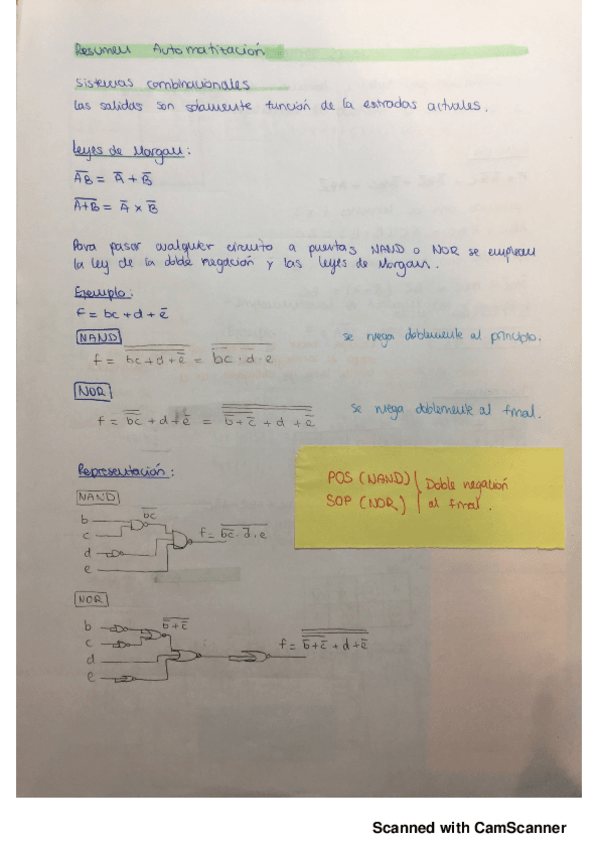 Resumen Automatización
Sistemas combinacionales
Las salidas son solamente función de la estradas actuales.
Leyes de Morgan:
A̅B̅ = A̅ + B̅
A̅+̅B̅ = A̅ × B̅
Para pasar cualquier circuito a puertas NAND o NOR se emplean
la ley de la doble negación y las leyes de Morgan.
Ejemplo:
f = bc + d + e̅
NAND
se niega doblemente al principio.
NOR
se niega doblemente al final.
Representación:
POS (NAND)
SOP (NOR)
Doble negación
al final.
NAND
b
c
d
e
b̅c̅
NOR
b
c
d
e
Scanned with CamScanner